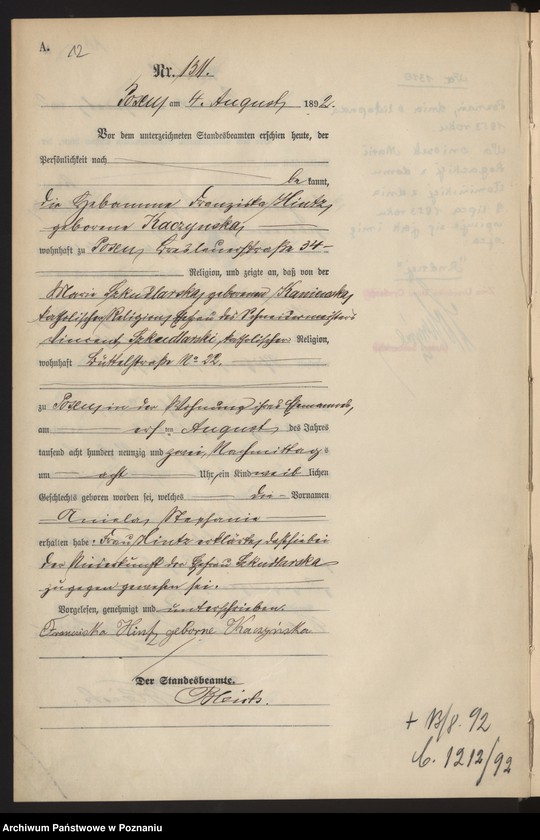 A.
12
Nr. 1311.
Posen am 4. August 1892.
Vor dem unterzeneten Standesbeamten erschien heute, der
Persönlichkeit nach
be kannt,
die Hebamme Franziska Hintz,
geborene Kaczynska,
wohnhaft zu Posen, Breslauerstraße 34
Religion, und zeigte an, daß von der
Marie Szkudlarska, geborenen Kaminska,
katholischer Religion, Ehefrau des Schneidermeisters
Vincent Szkudlarski, katholischer Religion,
wohnhaft Büttelstraße No 22.
zu Posen, in der Wohnung ihres Ehemannes,
am ersten August des Jahres
tausend acht hundert neunzig und zwei, Nachmittags
um acht Uhr, ein Kind weib lichen
Geschlechts geboren worden sei, welches die Vornamen
Aniela, Stephanie
erhalten habe. Frau Hintz erklärte, daß sie bei
der Niederkunft der Ehefrau Szkudlarska
zugegen gewesen sei.
Vorgelesen, genehmigt und unterschrieben.
Franciska Hintz geborne Kaczyńska
Der Standesbeamte.
+ 13/8. 92
C. 1212/92
Archiwum Państwowe w Poznaniu